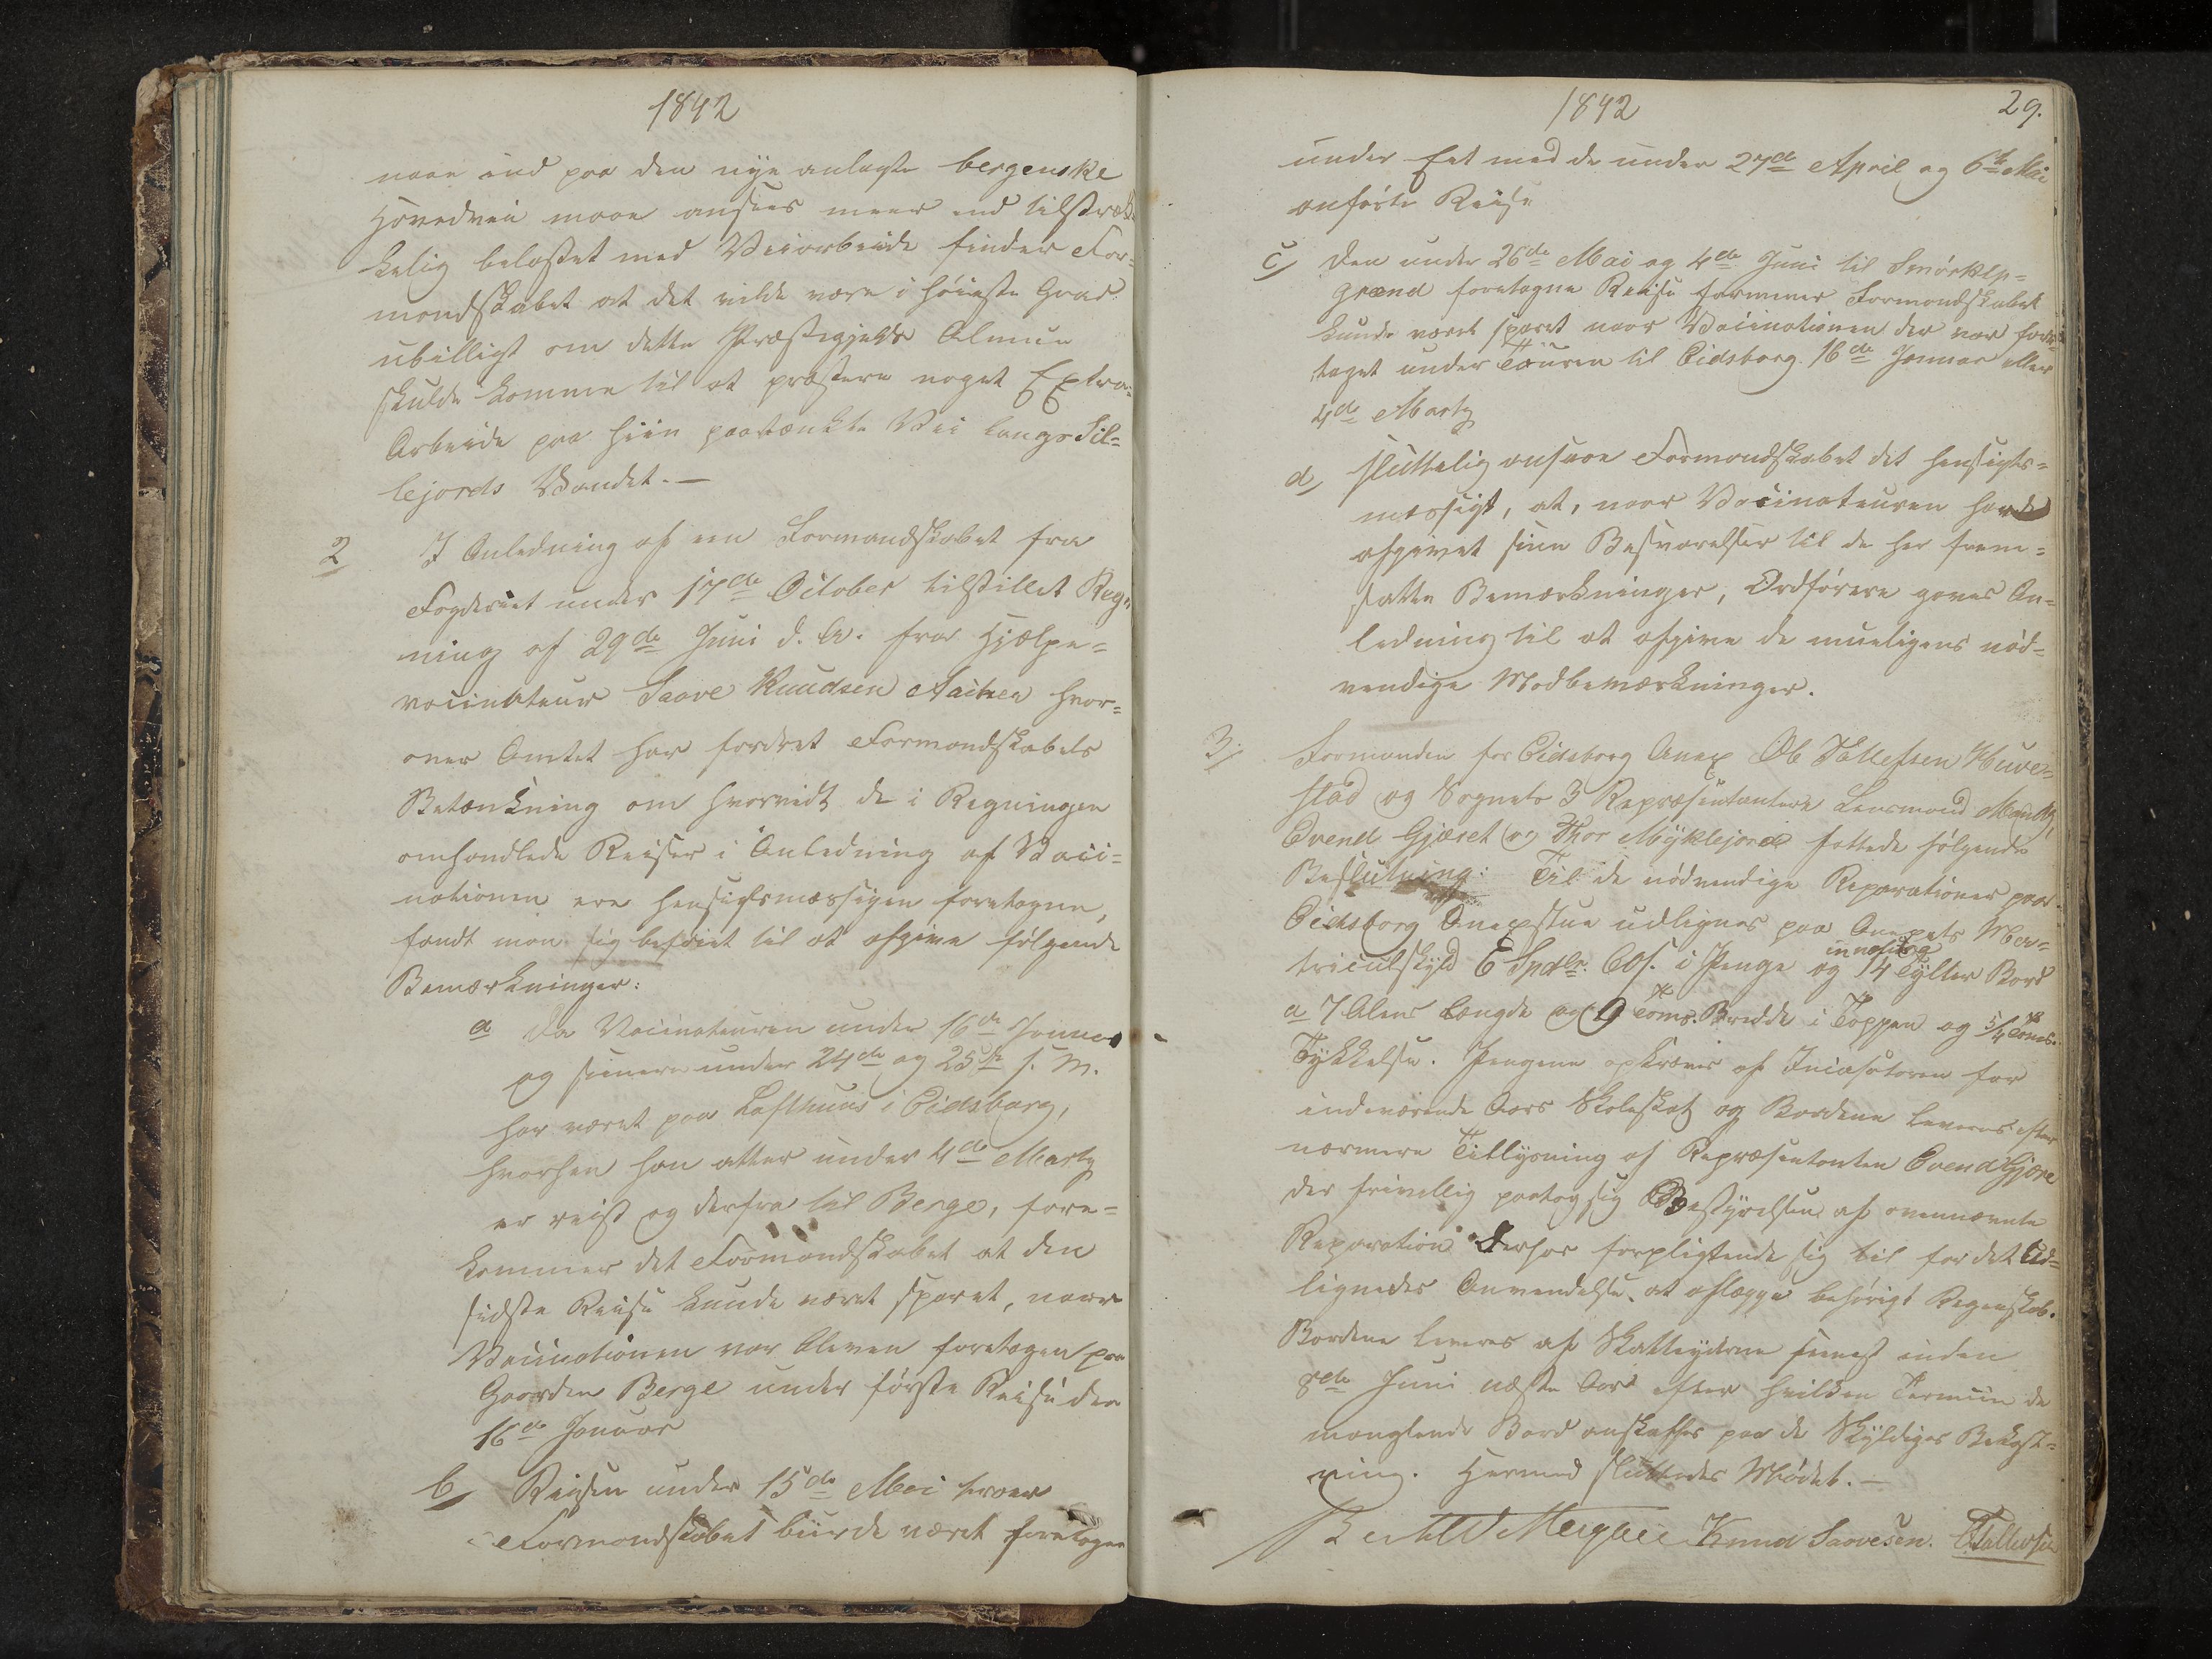 1842
naae ind paa den nye anlagte bergenske
Hovedvei maae ansees meer end tilstræk-
kelig belastet med Veiarbeide finder For=
mandskabet at det vilde være i høieste Grad
ubilligt om dette Præstegjelds Almue
skulde komme til at præstere noget Extra=
Arbeide paa hiin paatænkte Vei langs Sil=
lejords Vandet. —
2 I Anledning af en Formandskabet fra
Fogderiet under 17de October tilstillet Reg=
ning af 29de Juni d. A. fra Hjælpe=
vaccinateur Saave Knudsen hvor=
over Amtet har fordret Formandskabets
Betænkning om hvorvidt de i Regningen
omhandlede Reiser i Anledning af Vacci=
nationen ere hensigtsmæssigen foretagne,
fandt man sig beføiet til at afgive følgende
Bemærkninger:
a Da Vaccinateuren under 16de Januar
og senere under 24de og 25de s. M.
har været paa Lofthuus i Eidsborg,
hvorhen han atter under 4de Marty
er reist og derfra til Berge, fore=
kommer det Formandskabet at den
sidste Reise kunde været sparet, naar
Vaccinationen var bleven foretagen paa
Gaarden Berge under første Reise den
16de Januar
b/ Reisen under 15de Mai troer
Formandskabet burde været foretagen
1842 29.
under Eet med de under 27de April og 6te Mai
anførte Reise
c/ Den under 26de Mai og 4de Juni til Smørklep=
grænd foretagne Reise formener Formandskabet
kunde været sparet naar Vaccinationen der var fore=
taget under Touren til Eidsborg 16de Januar eller
4de Marty
d/ Sluttelig ansaae Formandskabet det hensigts=
mæssigt, at, naar Vaccinateuren havde
afgivet sine Besvarelser til de her frem=
satte Bemærkninger, Ordførere gaves An=
ledning til at afgive de mueligens nød=
vendige Modbemærkninger.
3/ Formanden for Eidsborg Anex Ole Tallefsen Huve=
stad og Sognets 3 Repræsentantere Lensmand
Evend Gjæret og Thor Myklejord fattede følgende
Beslutning: Til de nødvendige Reparationer paa
Eidsborg Anexstue udlignes paa Anexets Ma=
triculskyld 6 Spdlr. 60 s. i Penge og 14 Tylter Bord
a 7 Alens Længde og 9 Toms. Bredde i Toppen og 5/4 Toms.
Tykkelse. Pengene opkræves af Incasatoren for
indeværende Aars Skoleskat og Bordene leveres efter
nærmere Tillysning af Repræsentanten Evend Gjære
der frivillig paatog sig Bestyrelsen af ovennævnte
Reparation derhos forpligtende sig til for det Ud=
lignedes Anvendelse at aflægge behørigt Regnskab.
Bordene leveres af Skatteyderne senest inden
8de Juni næste Aar efter hvilken Termin de
manglende Bord anskaffes paa de Skyldiges Bekost=
ning. Hermed sluttedes Mødet. —
Knud Saavesen. O Tallefsen